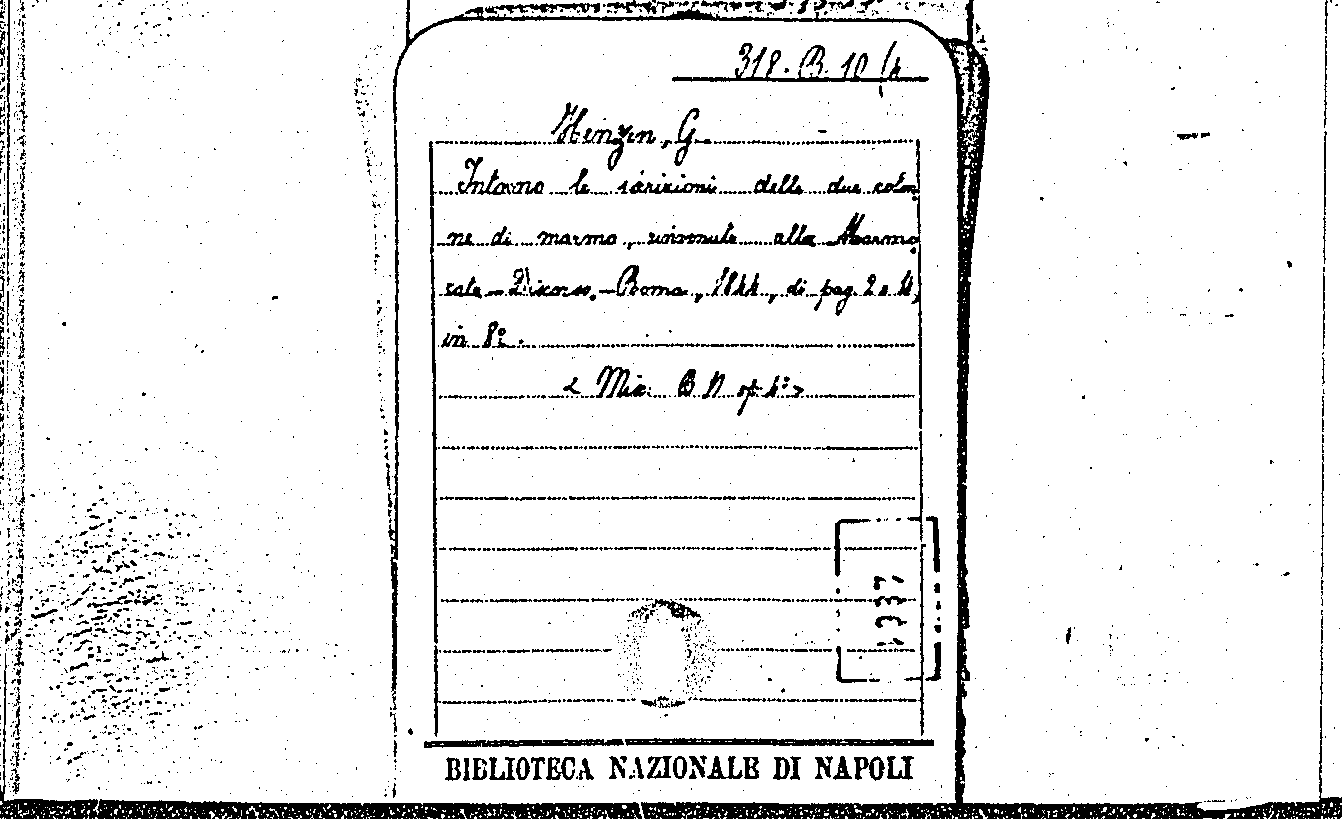 318. B. 10 (4
Henzen, G.
Intorno le iscrizioni delle due colon
ne di marmo, rinvenute alla Marmo
rata – Discorso. – Roma, 1844, di pag. 2 a
in 8º.
< Misc. B
1337
BIBLIOTECA NAZIONALE DI NAPOLI